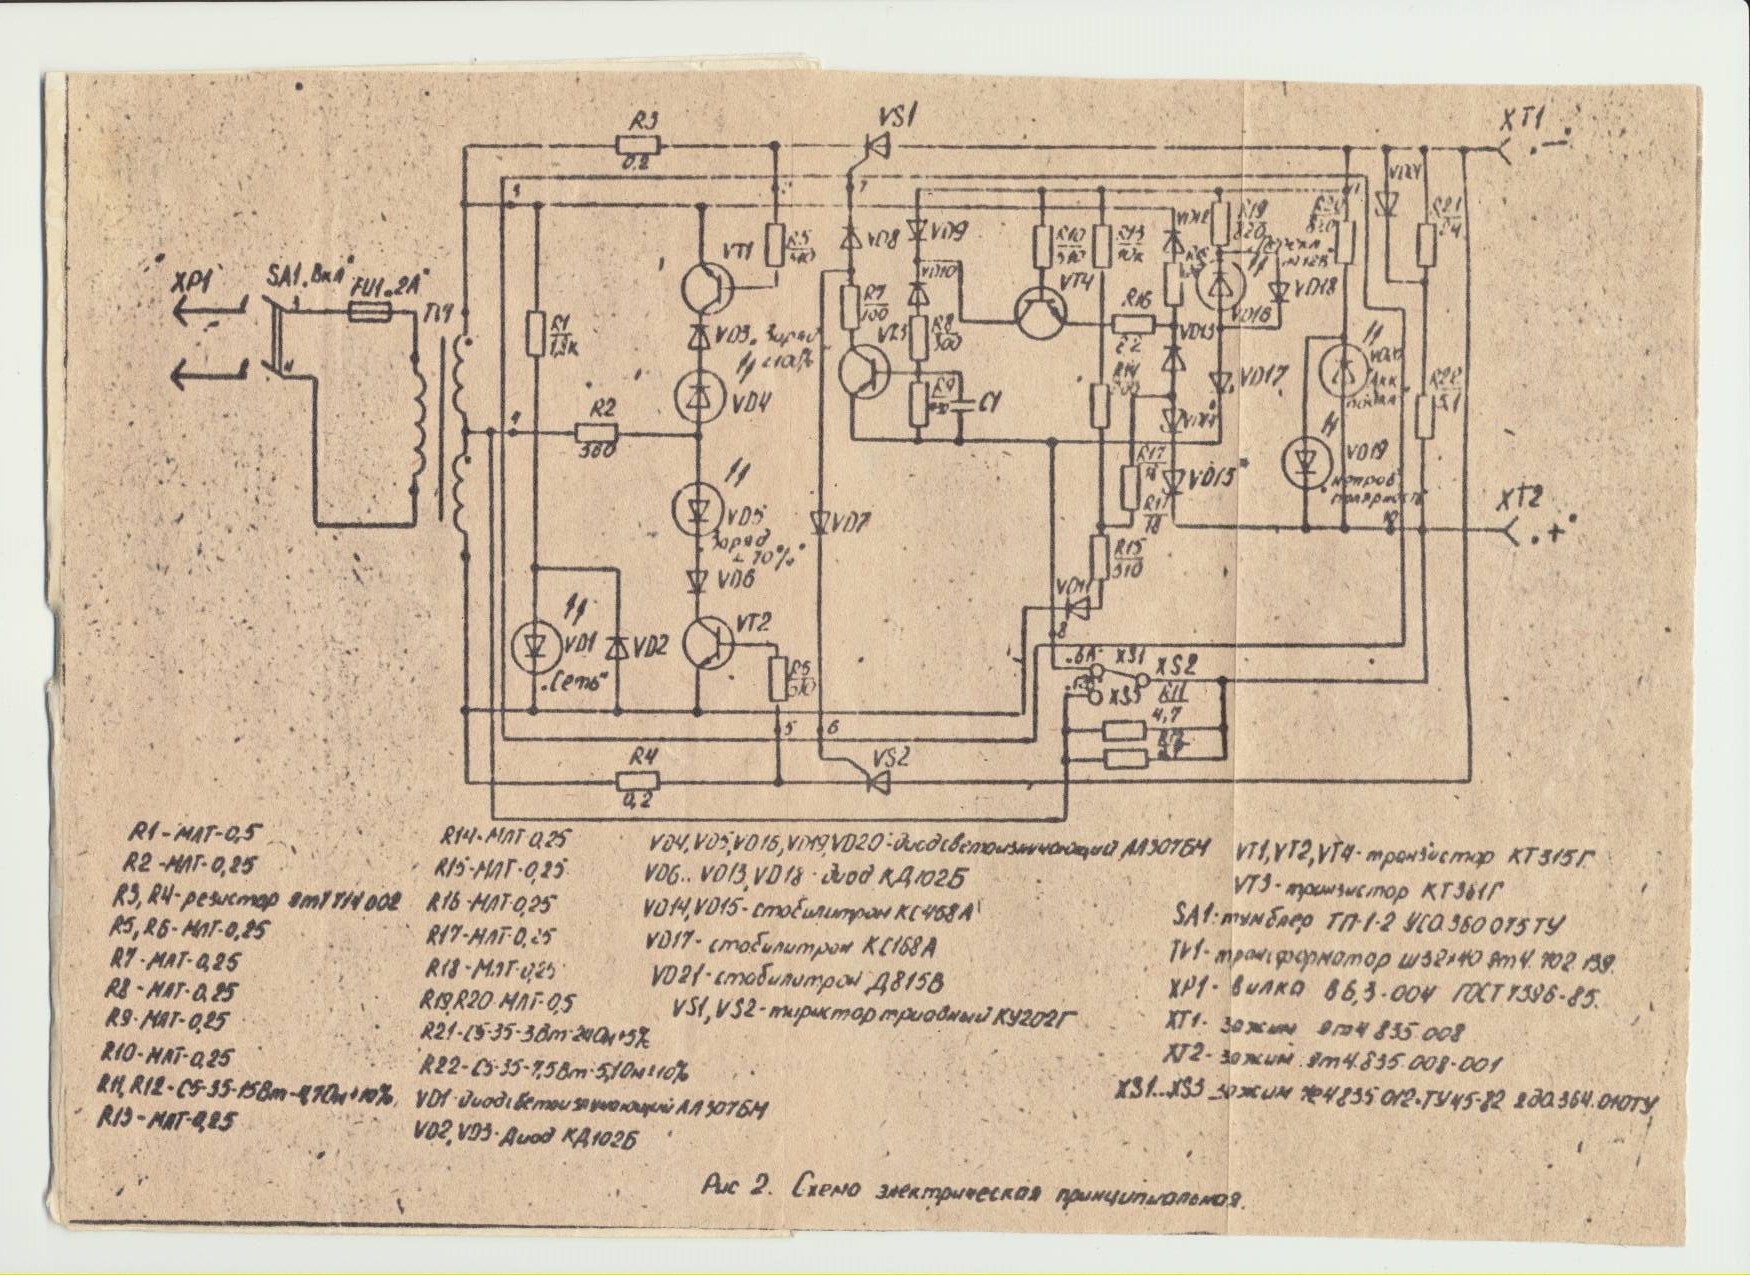 R3
0,2
VS1
XT1
"-"
XP1
SA1 "Вкл"
FU1 "2А"
TV1
VT1
R5
VD8
VD9
VD10
R10
R13
10к
VD12
R19
820
R20
820
R21
24
VD18
VT4
R16
VD16
R7
100
R8
300
VD3 "Заряд
VD4
R1
1,3к
R2
560
R9
C1
R14
VD13
VD17
R22
5,1
VD19
XT2
"+"
VD5
"Заряд
70%"
VD6
VD7
R17
VD15
R15
510
VD1
"Сеть"
VD2
VT2
5
6
8
XS1
XS2
XS3
R11
4,7
R12
R4
0,2
VS2
R1-МЛТ-0,5
R2-МЛТ-0,25
R3, R4-резистор
R5, R6-МЛТ-0,25
R7-МЛТ-0,25
R8-МЛТ-0,25
R9-МЛТ-0,25
R10-МЛТ-0,25
R11, R12-С5-35-15Вт-4,7Ом±10%
R13-МЛТ-0,25
R14-МЛТ-0,25
R15-МЛТ-0,25
R16-МЛТ-0,25
R17-МЛТ-0,25
R18-МЛТ-0,25
R19,R20-МЛТ-0,5
R21-С5-35-3Вт-24Ом±5%
R22-С5-35-7,5Вт-5,1Ом±10%
VD1-диод светоизлучающий АЛ307БМ
VD2, VD3-Диод КД102Б
VD4, VD5, VD16, VD19, VD20-диод светоизлучающий АЛ307БМ
VD6..VD13, VD18-диод КД102Б
VD14, VD15-стабилитрон КС468А
VD17-стабилитрон КС168А
VD21-стабилитрон Д815В
VS1, VS2-тиристор триодный КУ202Г
VT1, VT2, VT4-транзистор КТ315Г
VT3-транзистор КТ361Г
SA1-тумблер ТП-1-2 УСО.360.075ТУ
TV1-трансформатор Ш32х40
XP1-вилка В6,3-004 ГОСТ7396-85.
XT1-зажим 835.008
XT2-зажим 835.008-001
XS1...XS3-зажим
Рис 2. Схема электрическая принципиальная.